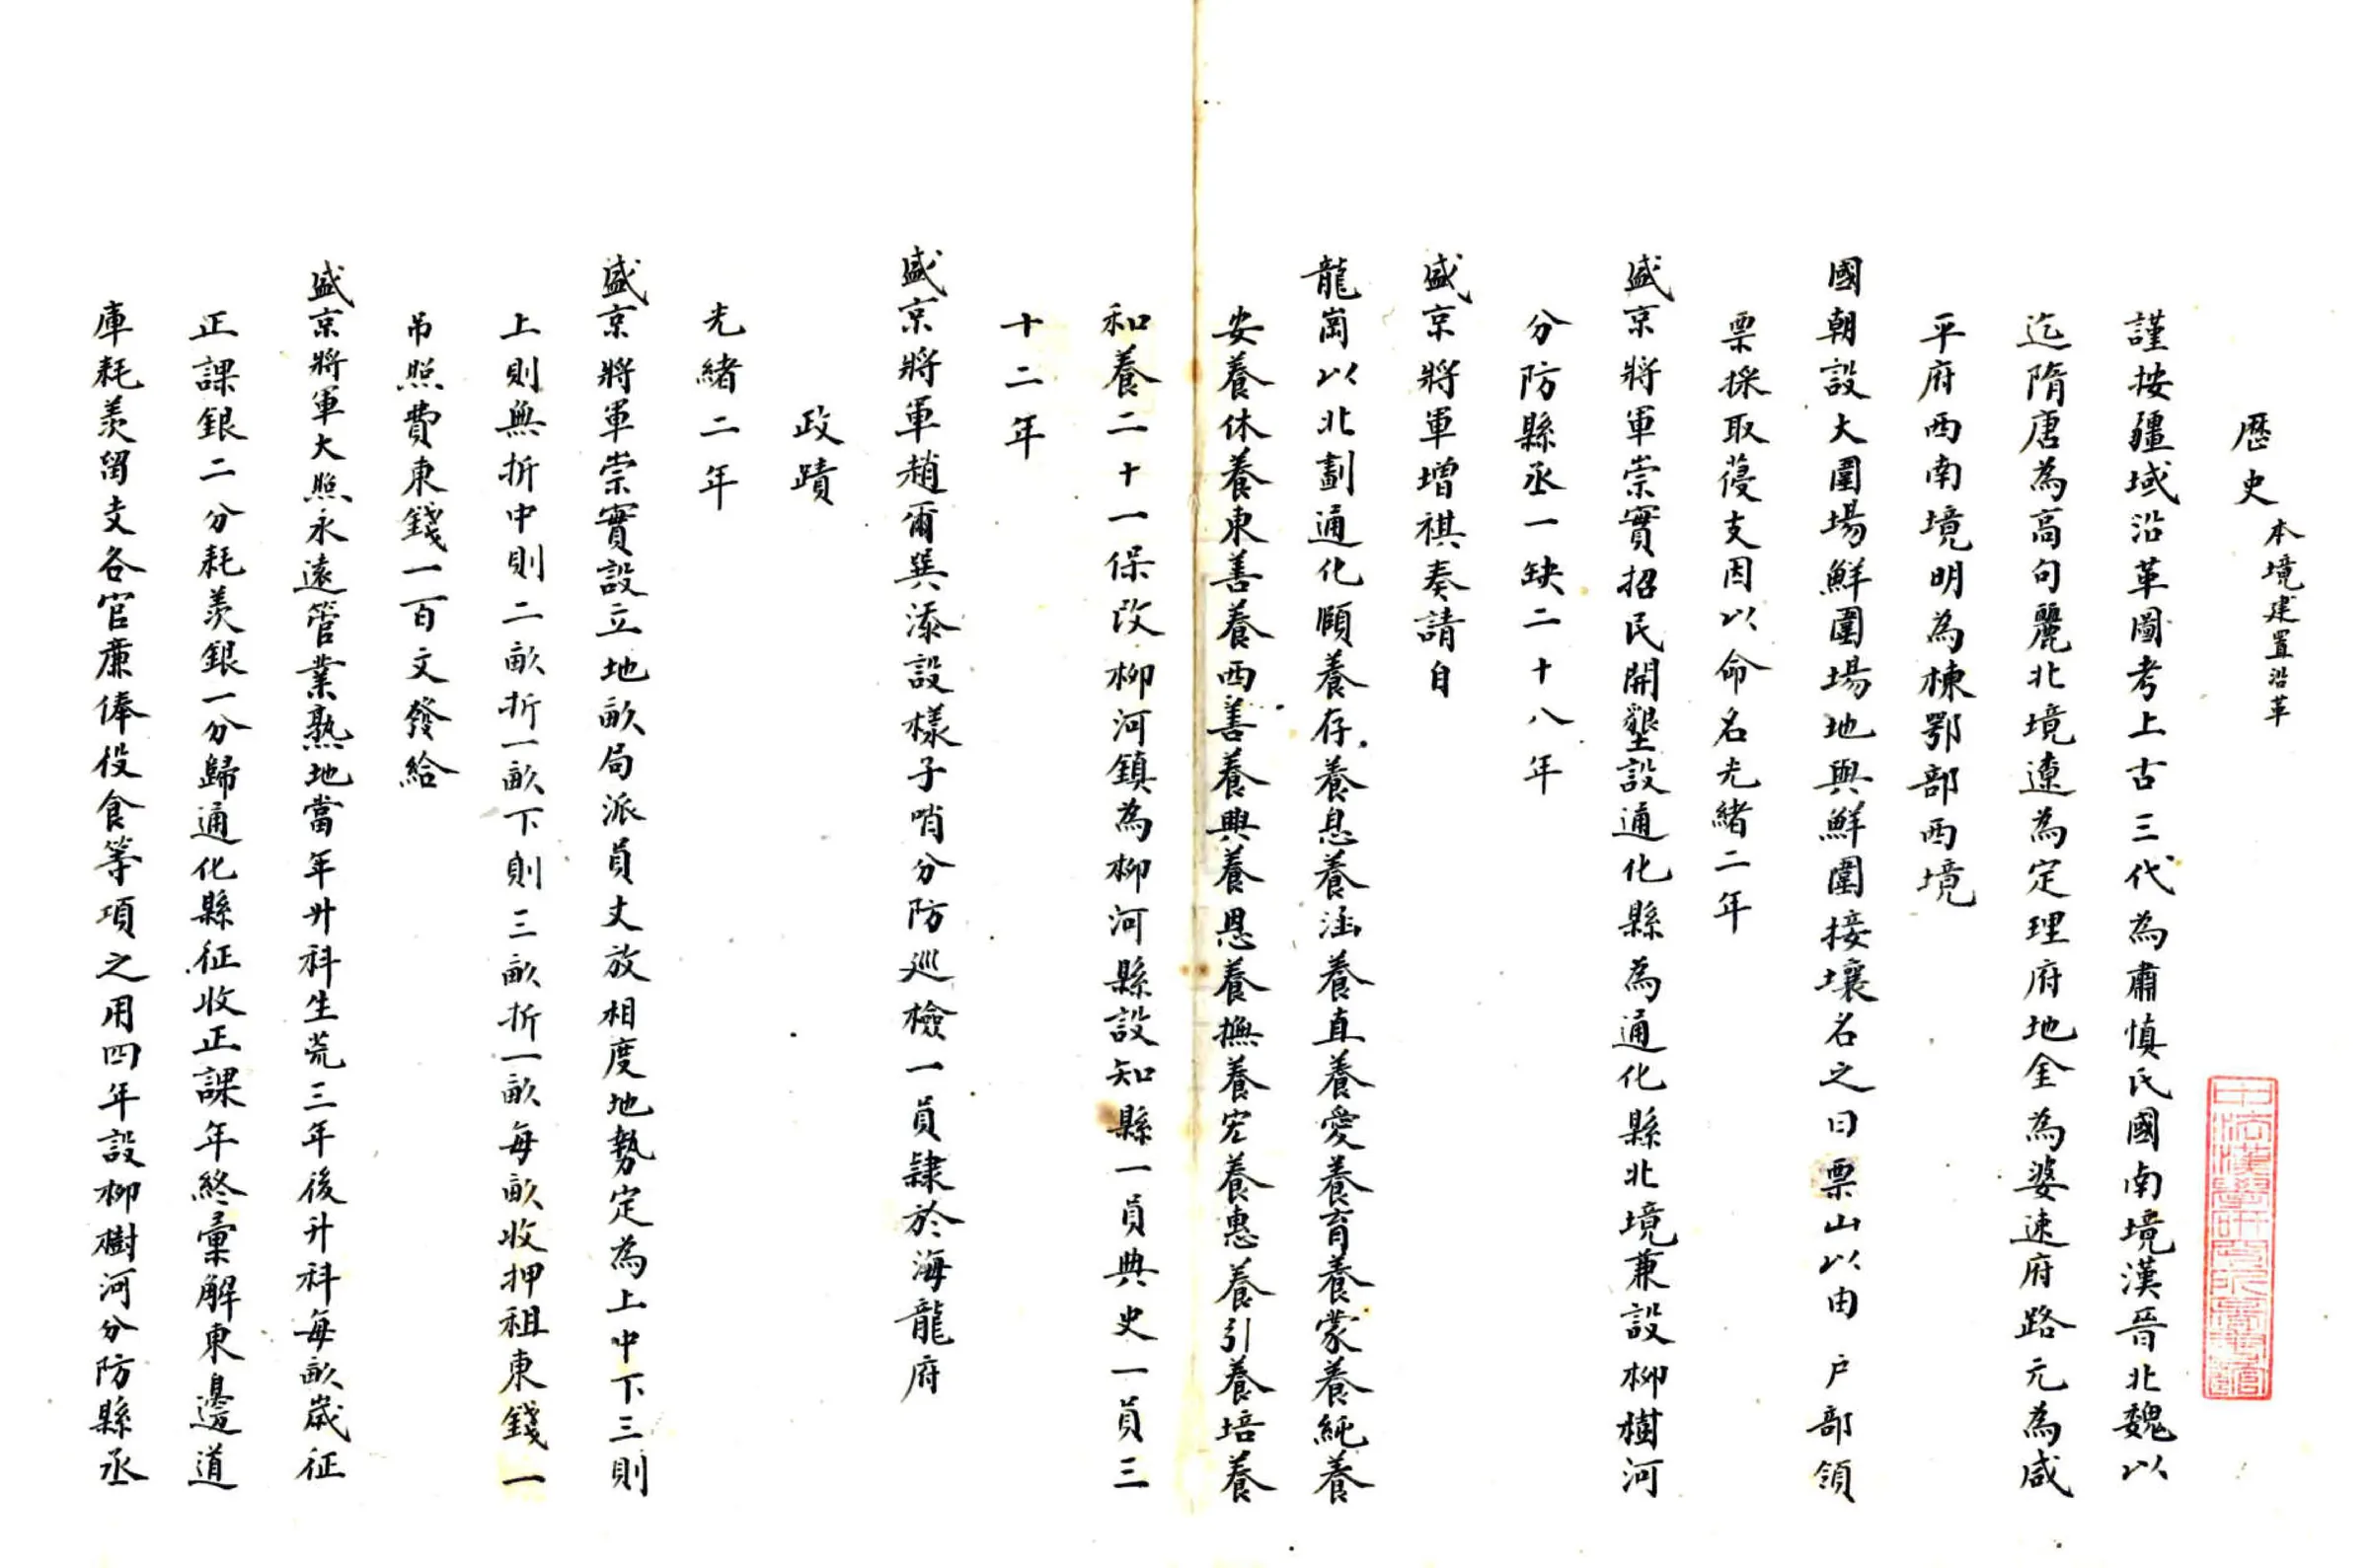 歷史本境建置沿革
謹按疆域沿革圖考上古三代為肅慎氏國南境漢晉北魏以
迄隋唐為高句麗北境遼為定理府地金為婆速府路元為咸
平府西南境明為棟鄂部西境
國朝設大圍場鮮圍場地與鮮圍接壤名之曰票山以由戶部領
票採取葠支因以命名光緒二年
盛京將軍崇實招民開墾設通化縣為通化縣北境兼設柳樹河
分防縣丞一缺二十八年
盛京將軍增祺奏請自
龍崗以北劃通化頤養存養息養涵養直養愛養育養蒙養純養
安養休養東善養西善養興養恩養撫養宏養惠養引養培養
和養二十一保改柳河鎮為柳河縣設知縣一員典史一員三
十二年
盛京將軍趙爾巽添設樣子哨分防巡檢一員隸於海龍府
政蹟
光緒二年
盛京將軍崇實設立地畝局派員丈放相度地勢定為上中下三則
上則無折中則二畝折一畝下則三畝折一畝每畝收押租東錢一
吊照費東錢一百文發給
盛京將軍大照永遠管業熟地當年升科生荒三年後升科每畝歲征
正課銀二分耗羨銀一分歸通化縣征收正課年終彙解東邊道
庫耗羨留支各官廉俸役食等項之用四年設柳樹河分防縣丞